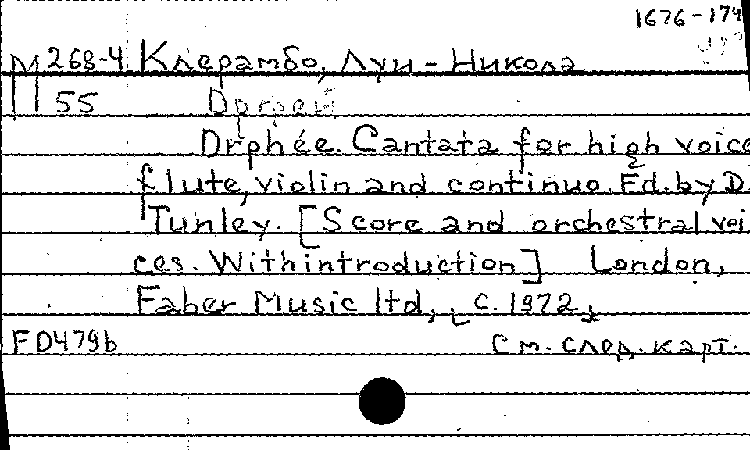 1676-174
М 268-4 Клерамбо, Луи-Никола
55 Орфей
Orphée. Cantata for high voice
flute, violin and continuo. Ed. by D.
Tunley. [Score and orchestral voi
ces. With introduction] London,
Faber Music ltd, [c. 1972]
FD479b См. след. карт.